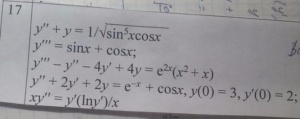 17
y'' + y = 1/√sin⁵xcosx
y''' = sinx + cosx;
y''' − y'' − 4y' + 4y = e²ˣ(x² + x)
y'' + 2y' + 2y = e⁻ˣ + cosx, y(0) = 3, y'(0) = 2;
xy'' = y'(lny')/x